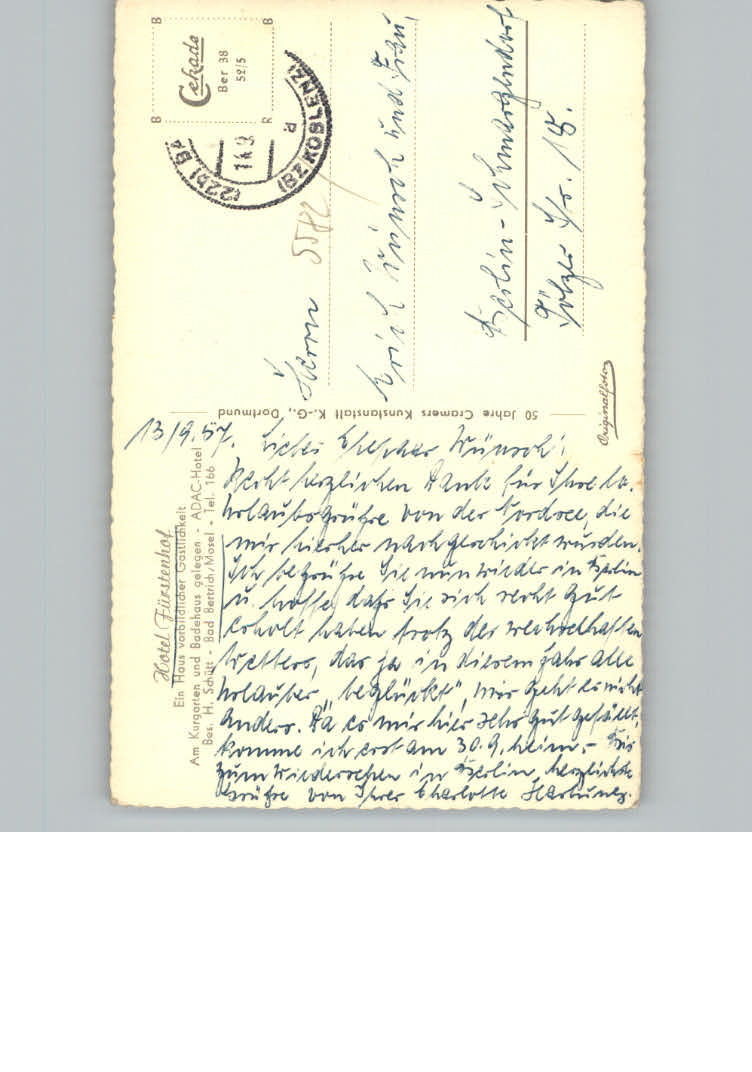 Hotel Fürstenhof
Ein Haus vorbildlicher Gastlichkeit
Am Kurgarten und Badehaus gelegen - ADAC-Hotel
Bes. H. Schütt - Bad Bertrich/Mosel - Tel. 166
13/9.57.
Liebes Ehepaar Wünsch!
Recht herzlichen Dank für Ihre lb.
Urlaubsgrüße von der Nordsee, die
mir hierher nachgeschickt wurden.
Ich begrüße Sie nun wieder in Berlin
u. hoffe, daß Sie sich recht gut
erholt haben trotz des wechselhaften
Wetters, das ja in diesem Jahr alle
Urlauber „beglückt“, mir geht es nicht
anders. Da es mir hier sehr gut gefällt,
komme ich erst am 30.9. heim. - Bis
zum Wiedersehen in Berlin herzlichste
Grüße von Ihrer Charlotte
50 Jahre Cramers Kunstanstalt K.-G., Dortmund
Originalfoto
Cekade
Ber 38
52/5
B B
B R
(22b)
(BZ KOBLENZ)
d
5582
Herrn
Erich Wünsch und Frau,
Berlin-Schmargendorf
Tölzer Str. 18.